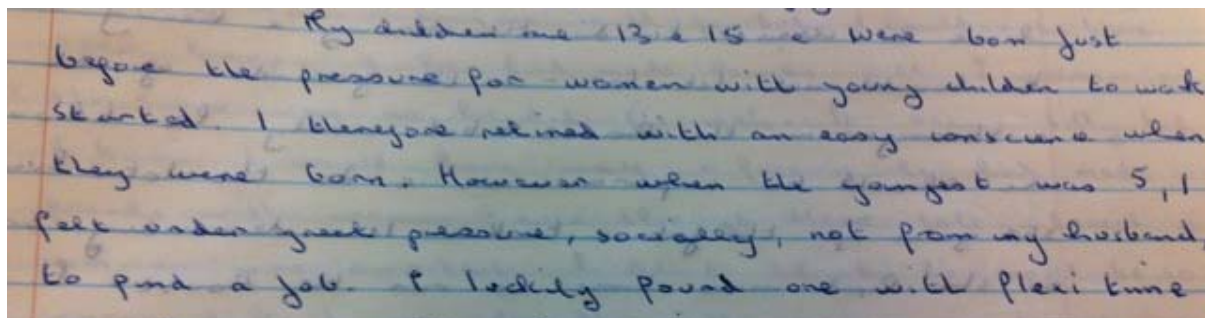 My children are 13 & 15 & were born just
before the pressure for women with young children to work
started. I therefore retired with an easy conscience when
they were born. However when the youngest was 5, I
felt under great pressure, socially, not from my husband,
to find a job. I luckily found one with flexi time